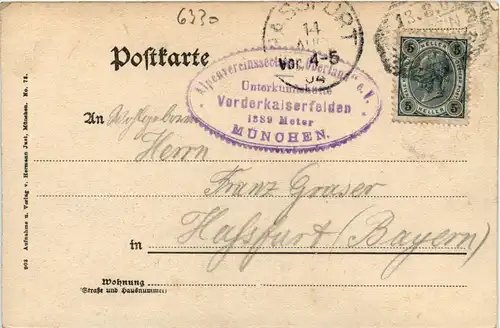 6330
HASSFURT
14
AUG
Vor. 4-5
04
13.8.0
5 HELLER 5
5 5
Postkarte
Alpenvereinssection "Oberland" e.V.
Unterkunftshütte
Vorderkaiserfelden
1389 Meter
MÜNCHEN.
An Wohlgeboren
Herrn
Franz Graser
in Hassfurt (Bayern)
Wohnung
(Straße und Hausnummer)
903 Aufnahme u. Verlag v. Hermann Just, München. No. 72.